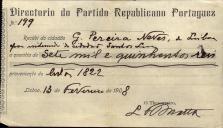 Directorio do Partido Republicano Portuguez
Nº 199
Recebi do cidadão G. Pereira Neves, de Lisboa
por intermedio do cidadão
a quantia de Sete mil e quinhentos reis
proveniente da
Lisboa, 13 de Fevereiro de 1908
O Thesoureiro,